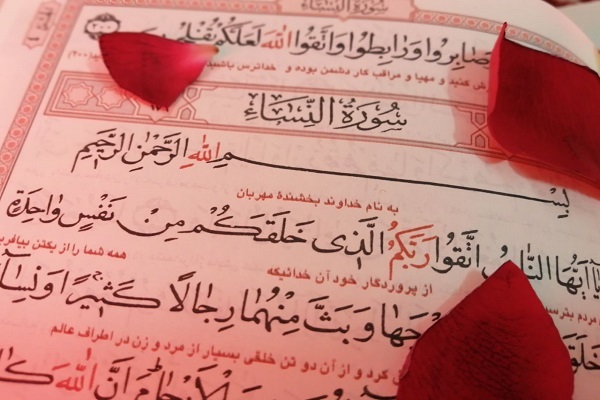 سُورَةُ النِّسَاءِ
صَابِرُوا وَ رَابِطُوا وَ اتَّقُوا اللهَ لَعَلَّكُمْ تُفْلِحُونَ
کنید و مهیا و مراقب کار دشمن بوده و خداترس باشید
سُورَةُ النِّسَاءِ
بِسْمِ اللهِ الرَّحْمٰنِ الرَّحٖيمِ
به نام خداوند بخشندهٔ مهربان
يَآ اَيُّهَا النَّاسُ اتَّقُوا رَبَّكُمُ الَّذٖى خَلَقَكُمْ مِنْ نَفْسٍ وَاحِدَةٍ
مردم از پروردگار خود آن خدائیکه همه شما را از یکتن
خَلَقَ وَ بَثَّ مِنْهُمَا رِجَالًا كَثٖيرًا وَ نِسَآءً
کرد و از آن دو تن خلقی بسیار از مرد و زن در اطراف عالم
اِنَّ اللهَ